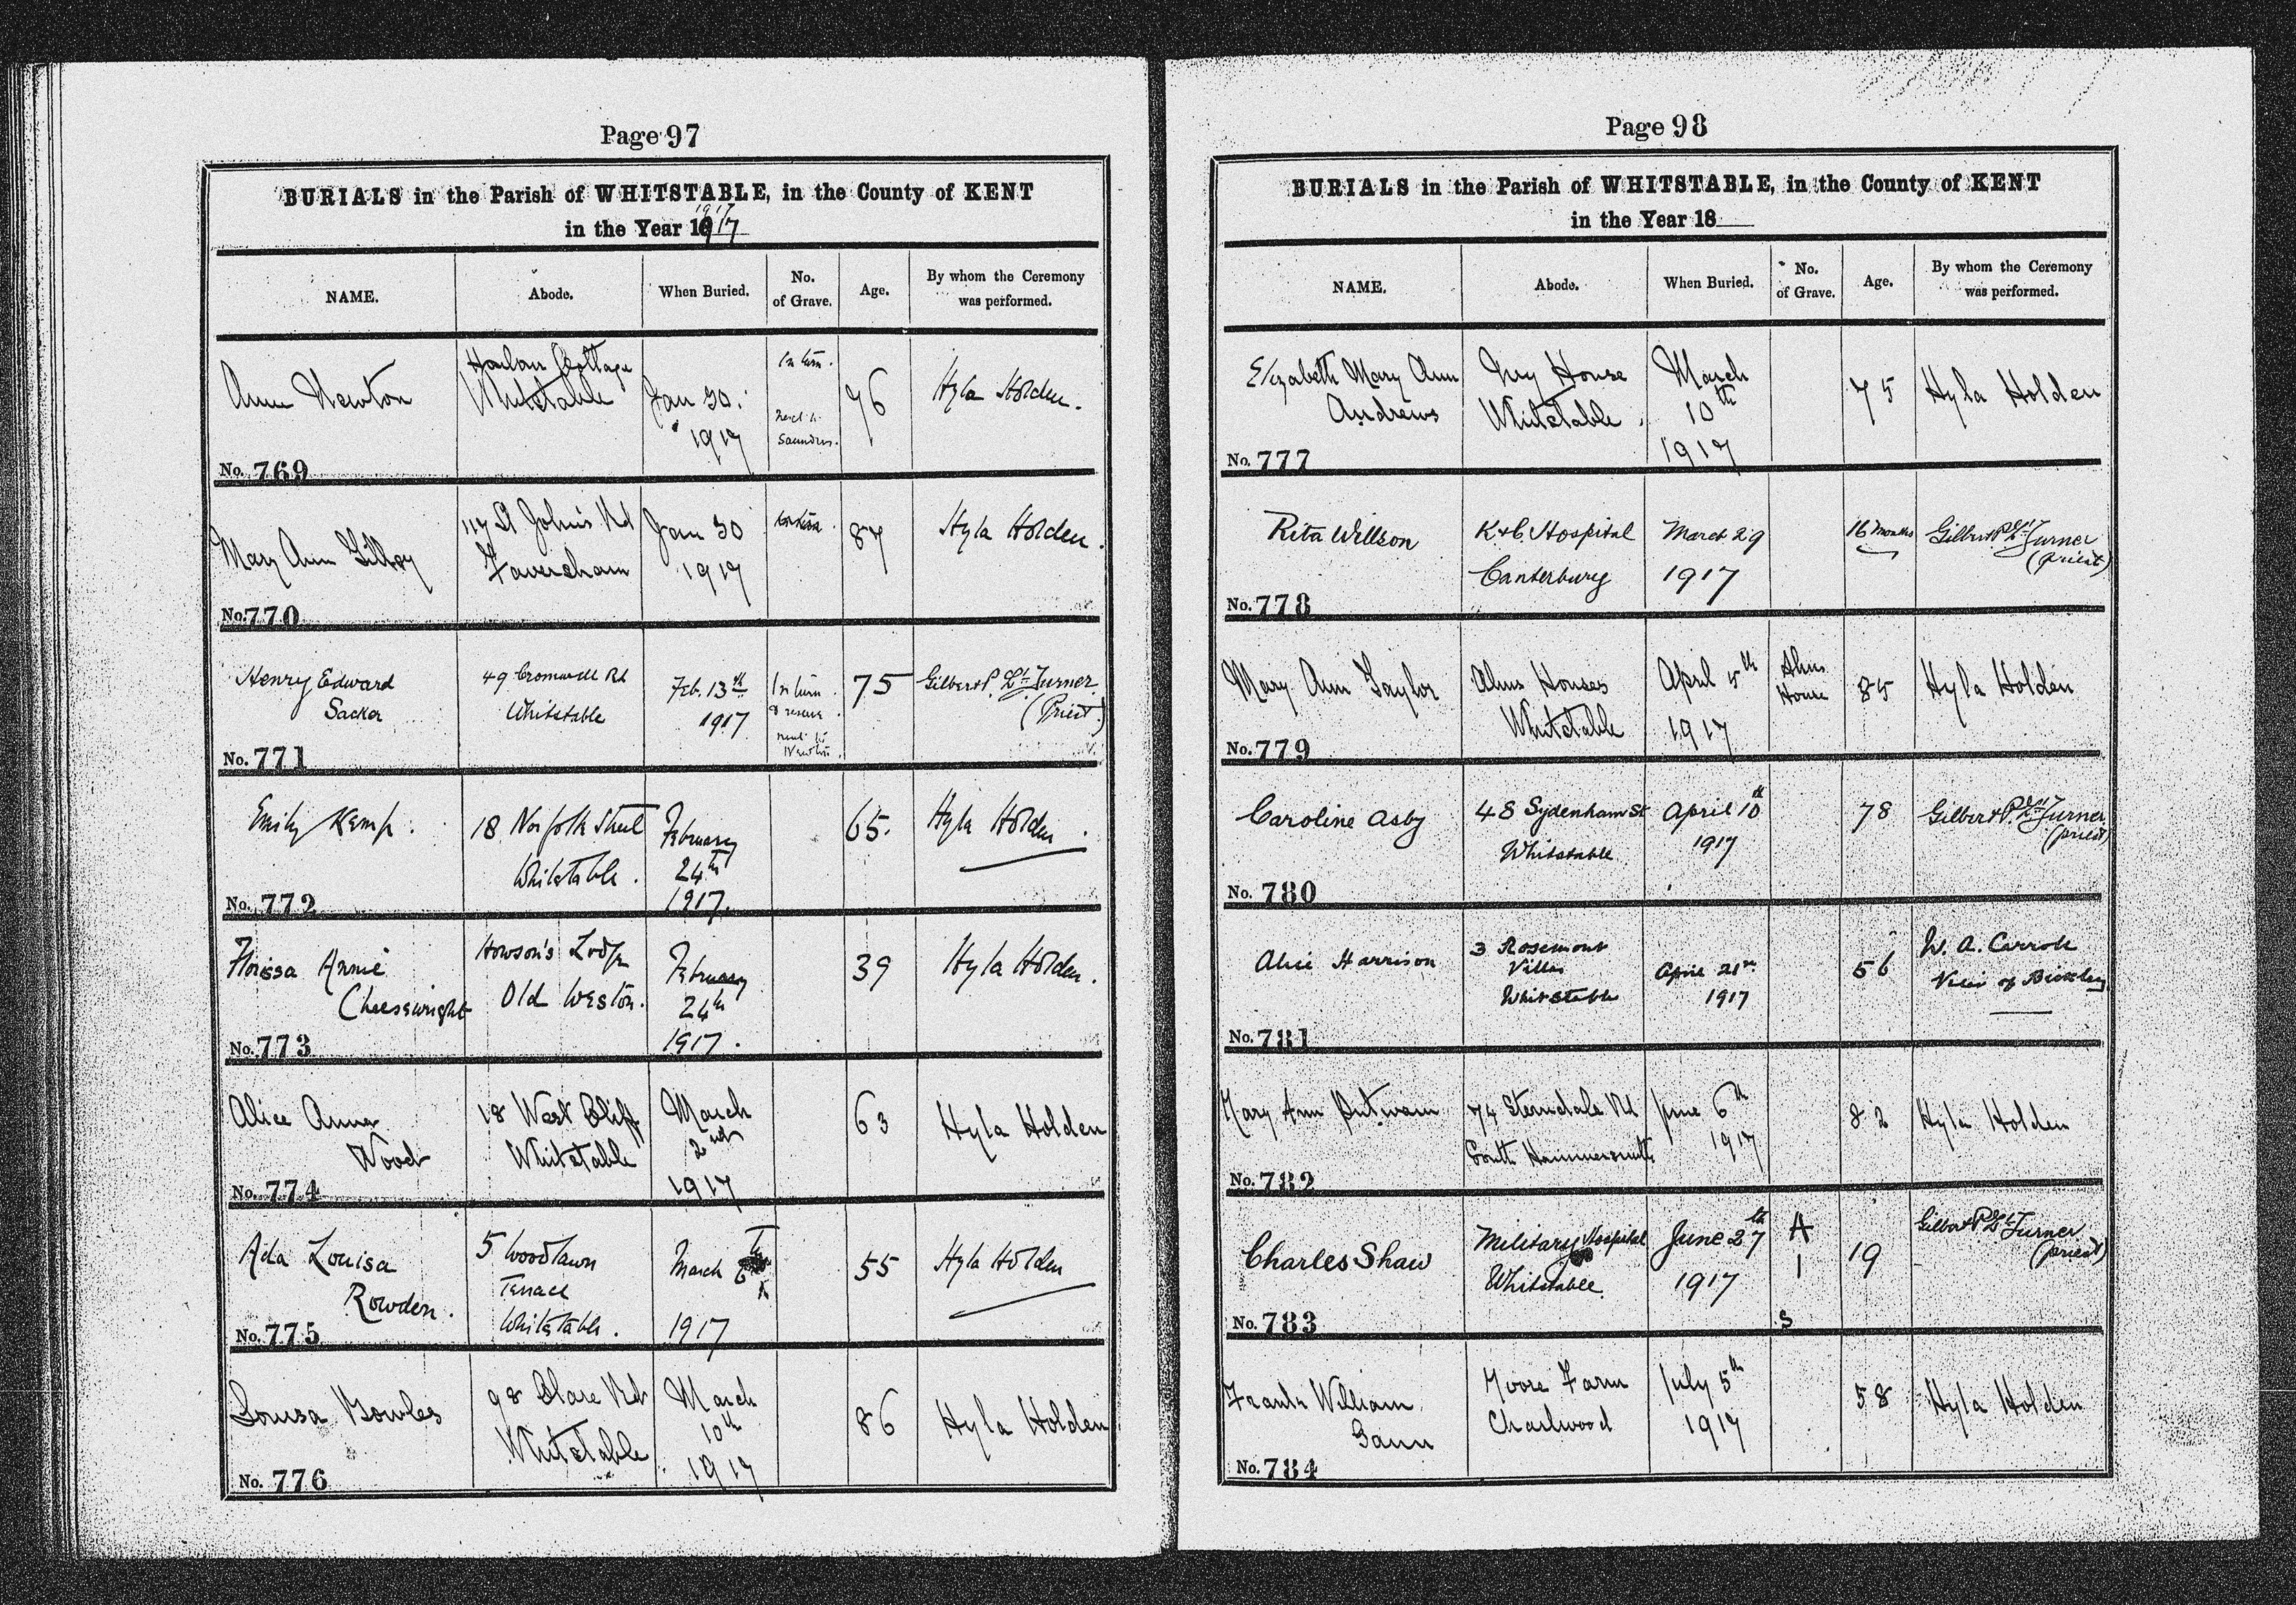 Page 97
BURIALS in the Parish of WHITSTABLE, in the County of KENT
in the Year 1917
NAME. Abode. When Buried. No. of Grave. Age. By whom the Ceremony was performed.
Ann Newton
Cottage
Whitstable
Jan 30.
1917
In turn.
Next to
Saunders.
76
Hyla Holden.
No. 769
Mary Ann
117 St John's Rd
Faversham
Jan 30
1917
87
Hyla Holden.
No. 770
Henry Edward
Sacker
49 Cromwell Rd
Whitstable
Feb. 13th
1917
In turn
& reserve
next to
Newton.
75
Gilbert P. Turner
(Priest.)
No. 771
Emily Kemp.
18 Norfolk Street
Whitstable.
February
24th
1917.
65.
Hyla Holden.
No. 772
Florissa Annie
Cheesewright
Howson's Lodge
Old Weston.
February
24th
1917.
39
Hyla Holden.
No. 773
Alice Anna
Wood
18 West Cliff
Whitstable
March
2nd
1917
63
Hyla Holden
No. 774
Ada Louisa
Rowden.
5 Woodlawn
Terrace
Whitstable.
March
1917
55
Hyla Holden
No. 775
Louisa Bowles
98 Rd
Whitstable
March
10th
1917
86
Hyla Holden
No. 776
Page 98
BURIALS in the Parish of WHITSTABLE, in the County of KENT
in the Year 18
NAME. Abode. When Buried. No. of Grave. Age. By whom the Ceremony was performed.
Elizabeth Mary Ann
Andrews
Ivy House
Whitstable.
March
10th
1917
75
Hyla Holden
No. 777
Rita Willson
K & C. Hospital
Canterbury
March 29
1917
16 months
Gilbert P. Turner
(priest)
No. 778
Mary Ann Taylor
Alms Houses
Whitstable
April 5th
1917
Alms
House
85
Hyla Holden
No. 779
Caroline Asby
48 Sydenham St
Whitstable
April 10th
1917
78
Gilbert P. Turner
(priest)
No. 780
Alice Harrison
3 Rosemont
Villas
Whitstable
April 21st
1917
56
W. A. Carroll
Vicar of Bickley
No. 781
Mary Ann Putwain
74 Sterndale Rd
South Hammersmith
June 6th
1917
82
Hyla Holden
No. 782
Charles Shaw
Military Hospital
Whitstable.
June 27th
1917
A
1
S
19
Gilbert P. Turner
(priest)
No. 783
Frank William
Gann
Farm
Charlwood
July 5th
1917
58
Hyla Holden
No. 784